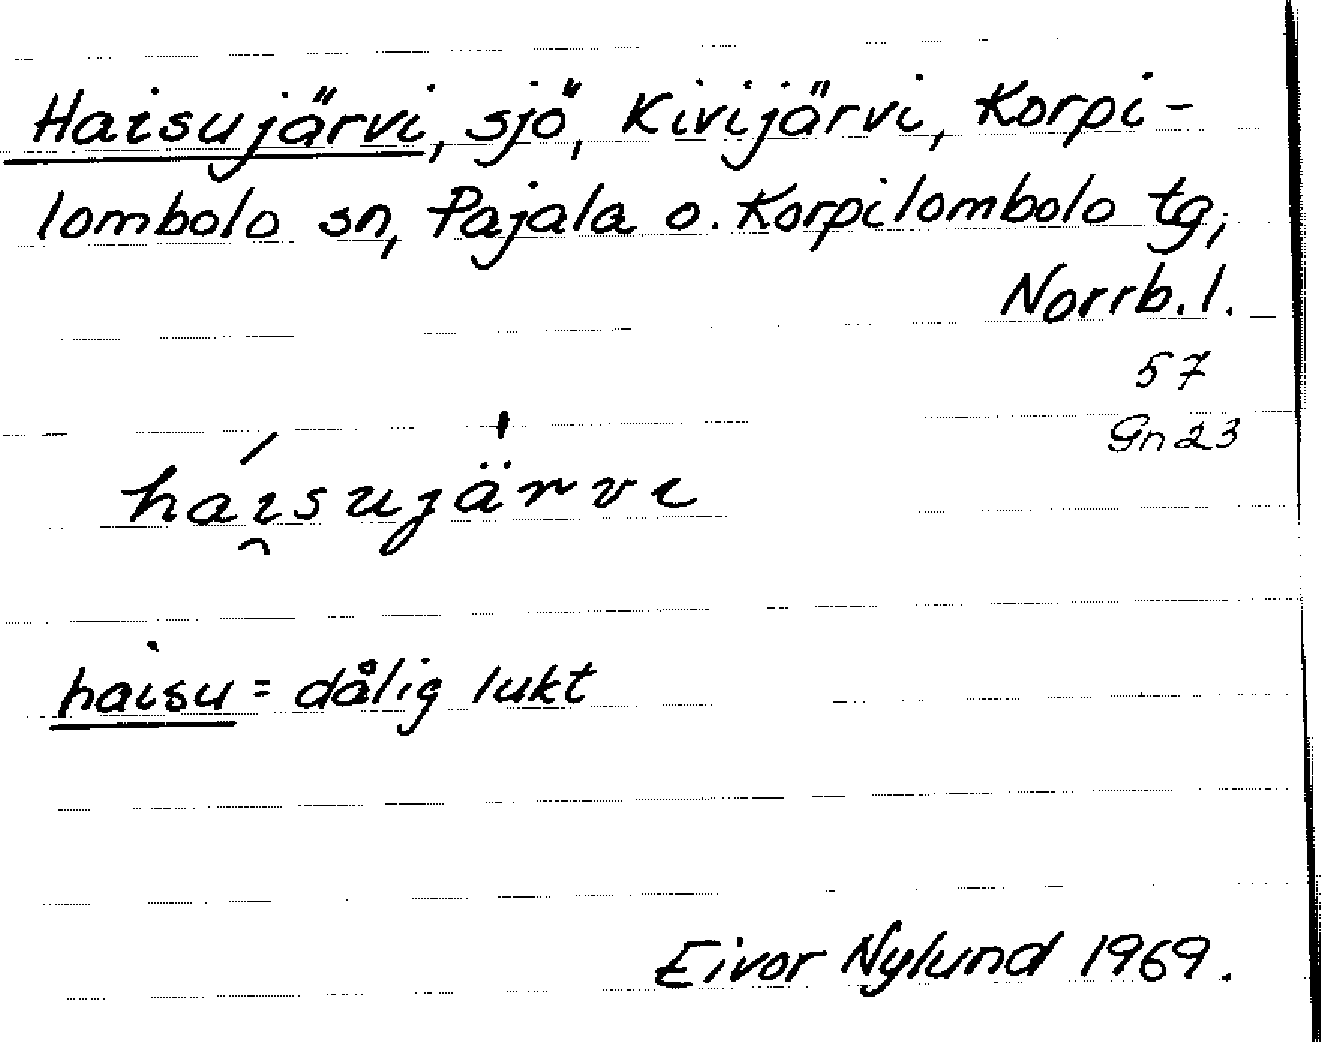 Haisujärvi, sjö, Kivijärvi, Korpi-
lombolo sn, Pajala o. Korpilombolo tg,
Norrb. l.
57
Gn 23
há\u026As\u032Fujärvi
haisu = dålig lukt
Eivor Nylund 1969.